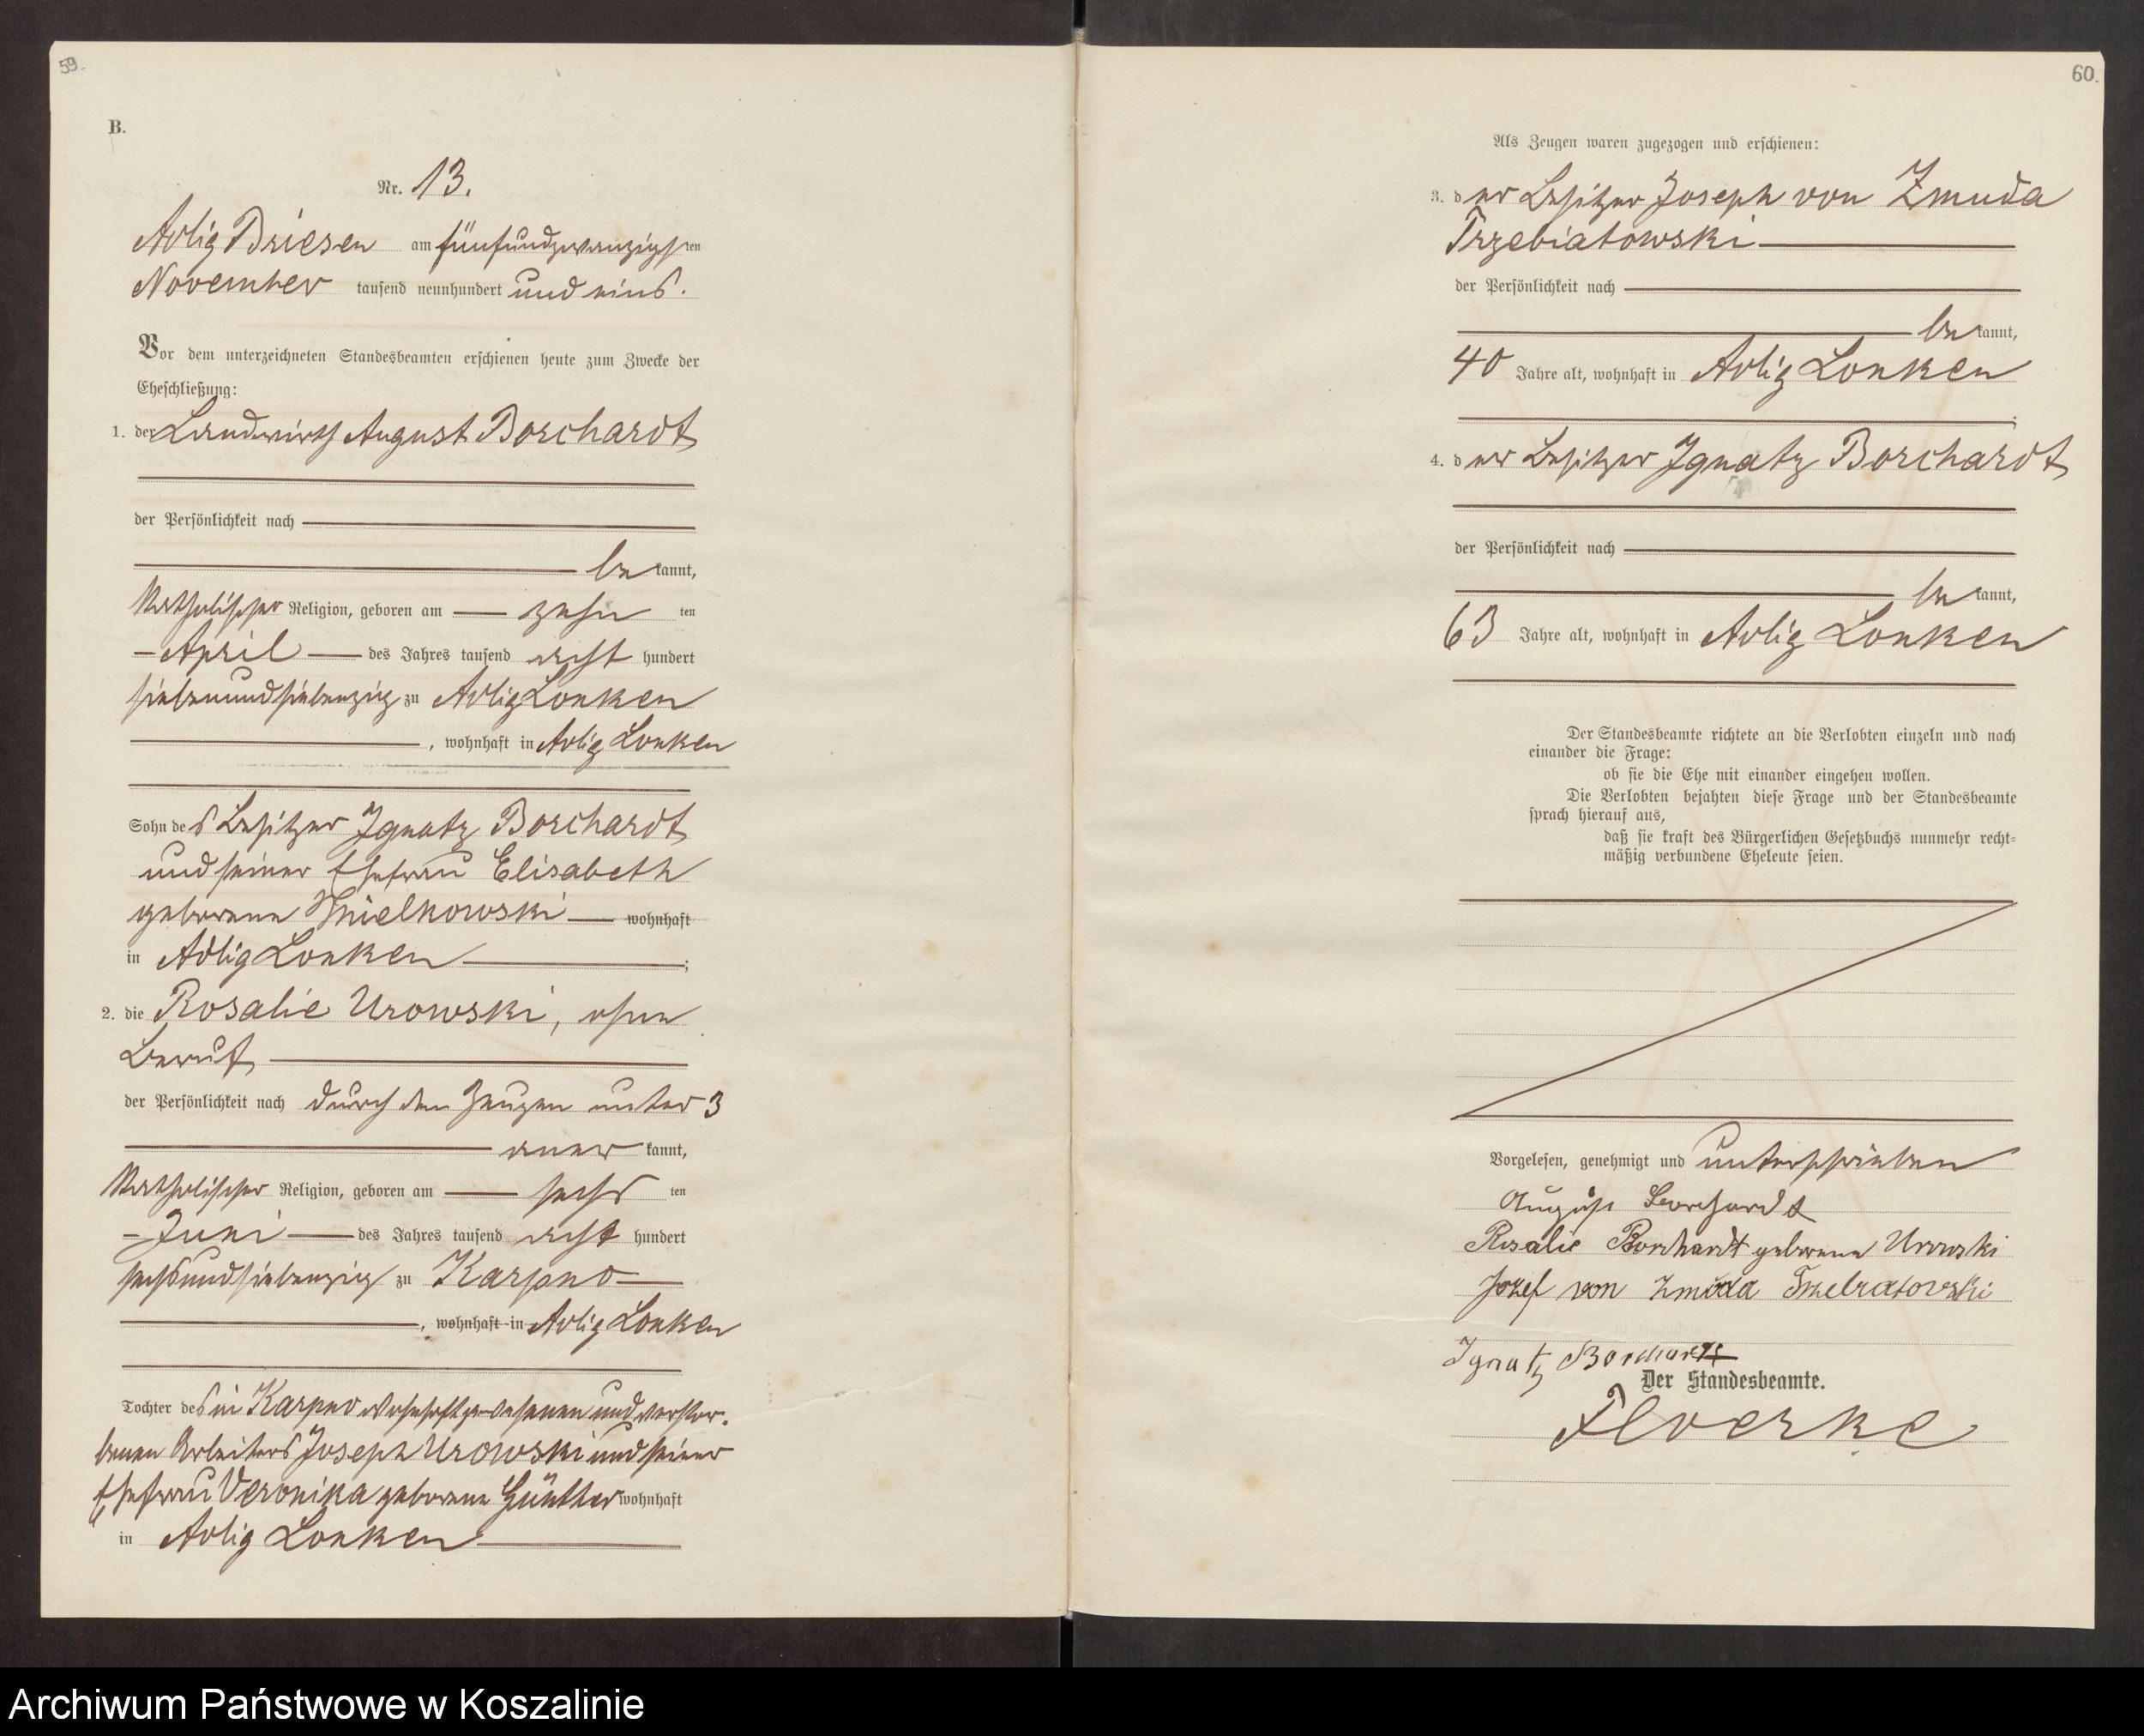 59.
B.
Nr. 13.
Adlig Briesen am fünfundzwanzigsten
November tausend neunhundert und eins.
Vor dem unterzeichneten Standesbeamten erschienen heute zum Zwecke der
Eheschließung:
1. der Landwirth August Borchardt
der Persönlichkeit nach
be kannt,
katholischer Religion, geboren am zehn ten
April des Jahres tausend acht hundert
siebenundsiebenzig zu Adlig Lonken
, wohnhaft in Adlig Lonken
Sohn des Besitzer Ignatz Borchardt
und seiner Ehefrau Elisabeth
geborene wohnhaft
in Adlig Lonken ;
2. die Rosalie Urowski, ohne
Beruf,
der Persönlichkeit nach durch den Zeugen unter 3
aner kannt,
katholischer Religion, geboren am sechs ten
Juni des Jahres tausend acht hundert
sechsundsiebenzig zu Karpno
, wohnhaft in Adlig Lonken
Tochter des in Karpno wohnhaft gewesenen und verstor-
benen Arbeiters Joseph Urowski und seiner
Ehefrau Veronika geborene Günther wohnhaft
in Adlig Lonken
60.
Als Zeugen waren zugezogen und erschienen:
3. der Besitzer Joseph von Zmuda
Trzebiatowski
der Persönlichkeit nach
be kannt,
40 Jahre alt, wohnhaft in Adlig Lonken
;
4. der Besitzer Ignatz Borchardt
der Persönlichkeit nach
be kannt,
63 Jahre alt, wohnhaft in Adlig Lonken
Der Standesbeamte richtete an die Verlobten einzeln und nach
einander die Frage:
ob sie die Ehe mit einander eingehen wollen.
Die Verlobten bejahten diese Frage und der Standesbeamte
sprach hierauf aus,
daß sie kraft des Bürgerlichen Gesetzbuchs nunmehr recht-
mäßig verbundene Eheleute seien.
Vorgelesen, genehmigt und unterschrieben
August Borchardt
Rosalie Borchardt geborene Urowski
Jozef von Zmuda Trzebiatowski
Ignatz Borchardt
Der Standesbeamte.
Archiwum Państwowe w Koszalinie